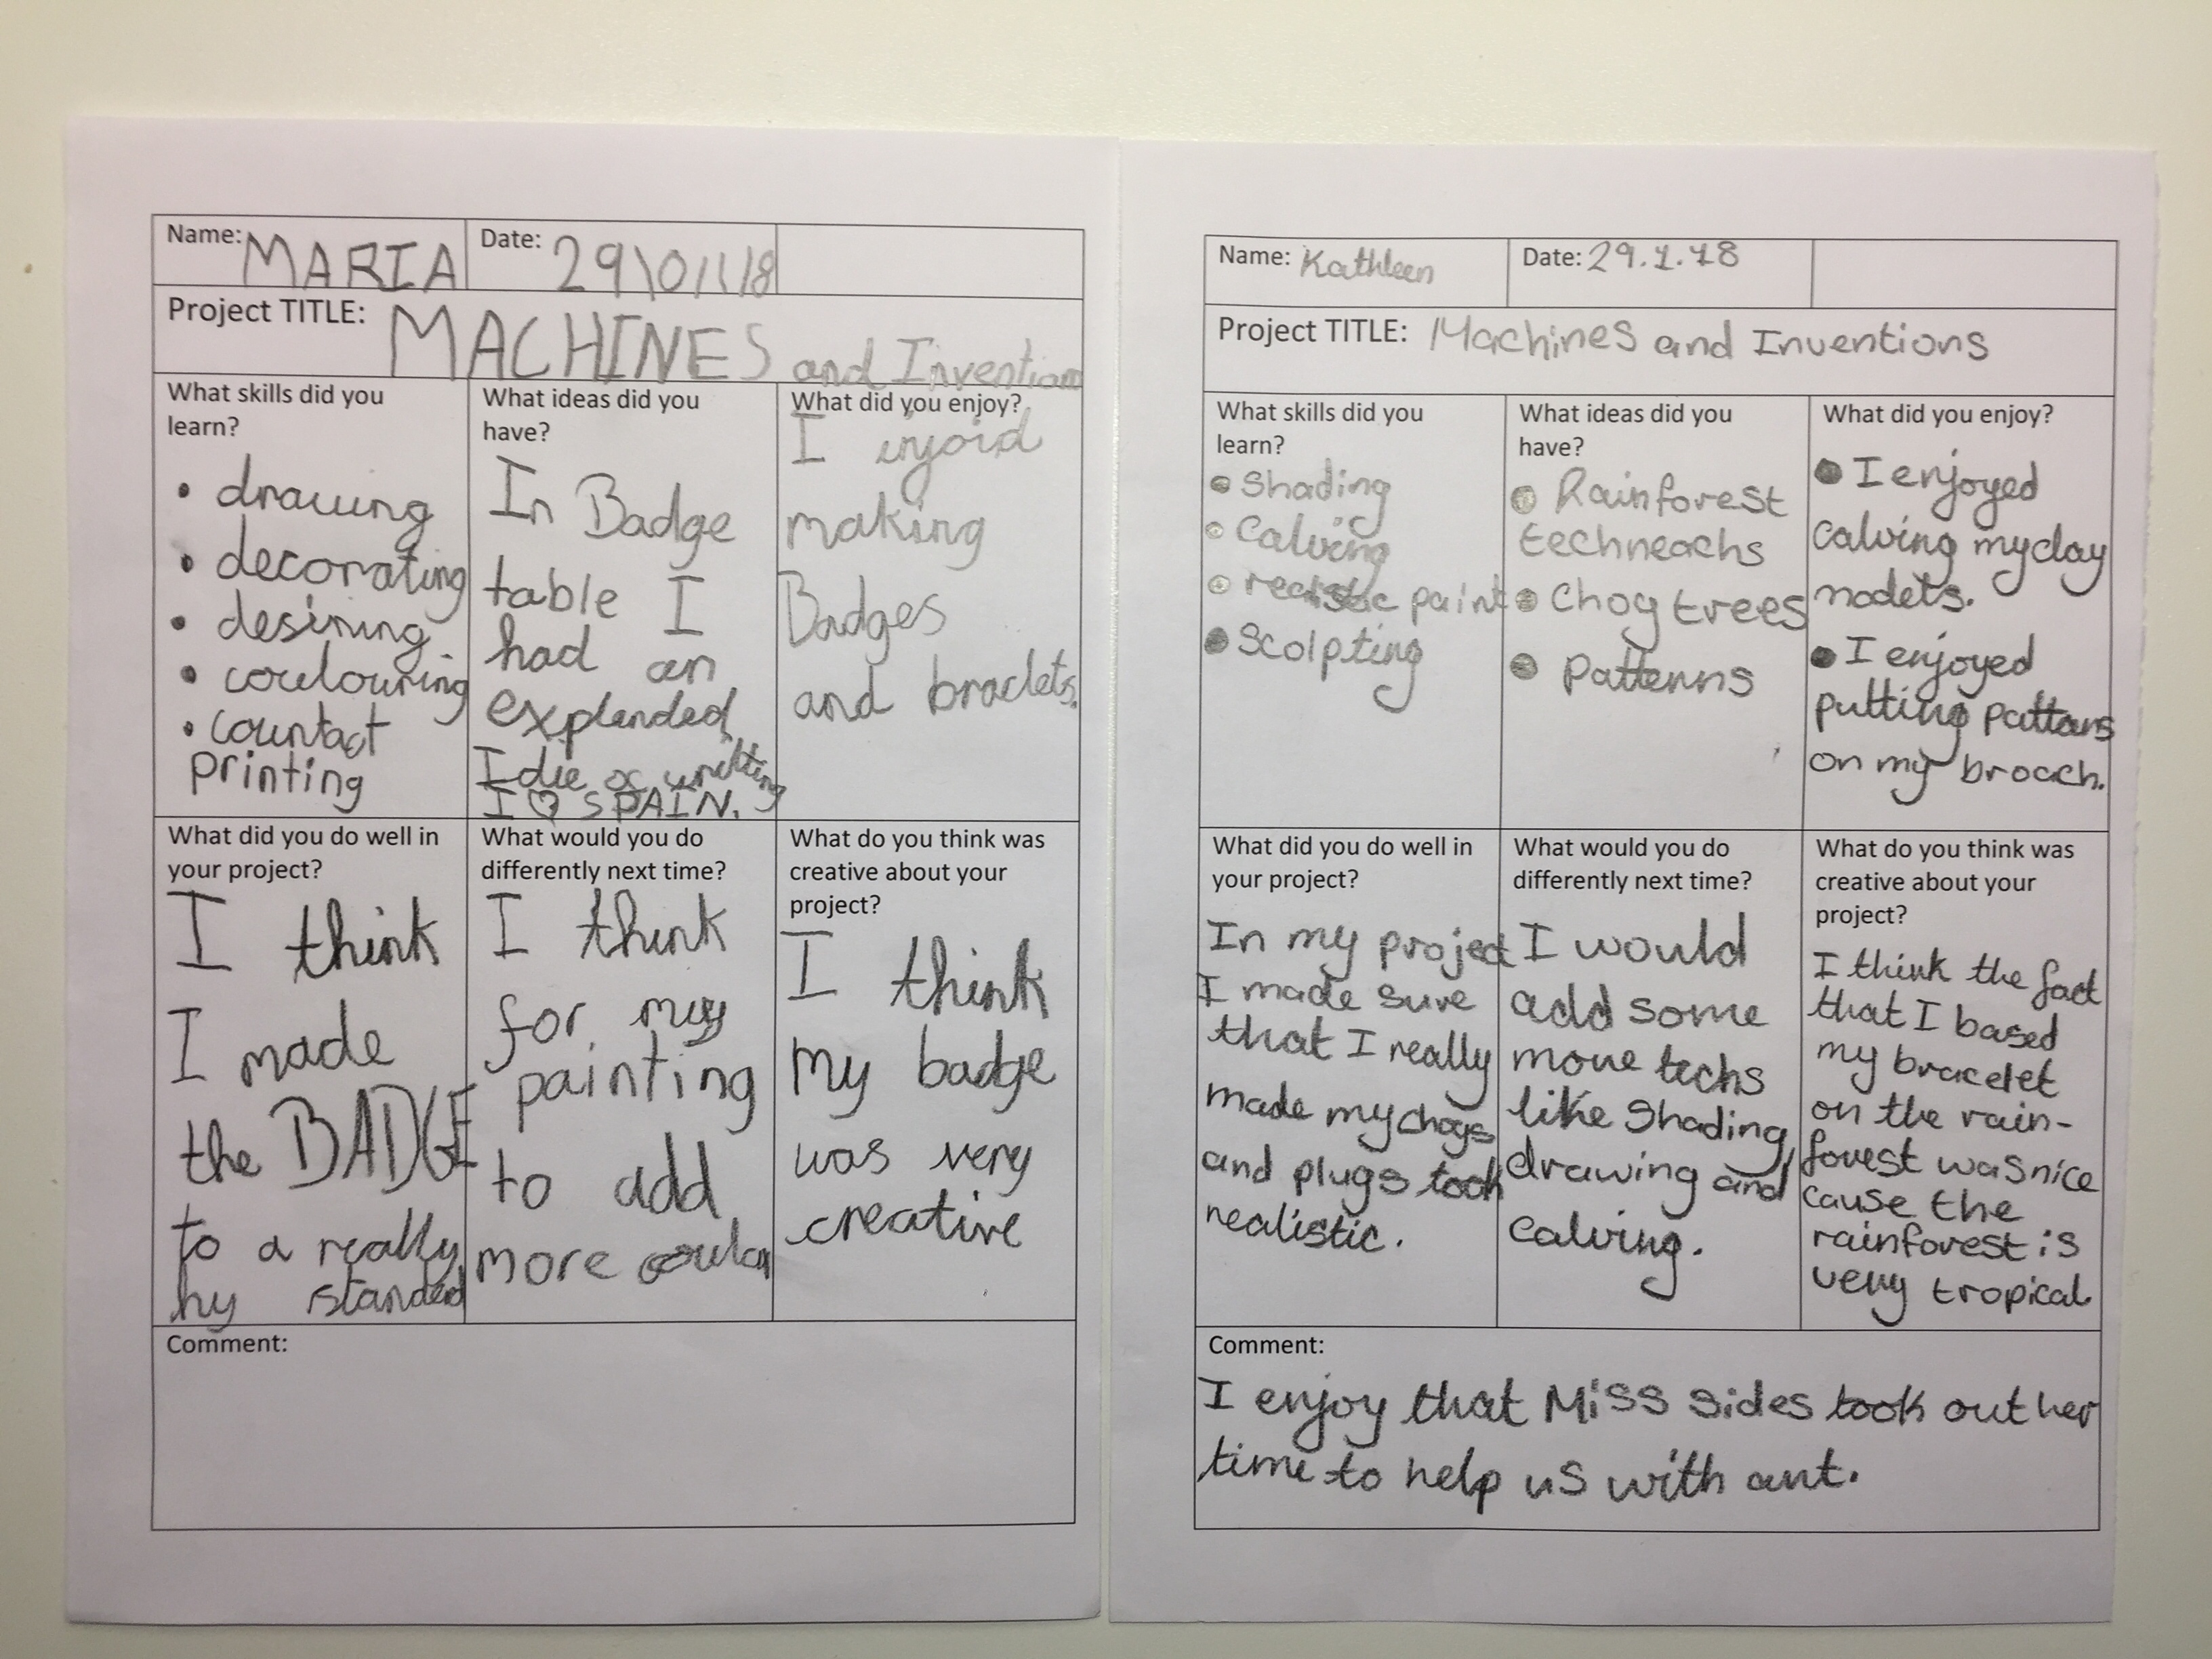 Name: MARIA
Date: 29\01\18
Project TITLE: MACHINES and Invention
What skills did you
learn?
• drawing
• decorating
• desining
• coulouring
• countact
printing
What ideas did you
have?
In Badge
table I
had an
explended
I die of
I ♡ SPAIN.
What did you enjoy?
I injoid
making
Badges
and braclets.
What did you do well in
your project?
I think
I made
the BADGE
to a really
hy standed
What would you do
differently next time?
I think
for my
painting
to add
more
What do you think was
creative about your
project?
I think
my badge
was very
creative
Comment:
Name: Kathleen
Date: 29.1.18
Project TITLE: Machines and Inventions
What skills did you
learn?
Shading
Calving
paint
Scolpting
What ideas did you
have?
Rainforest
techneachs
Chog trees
Patterns
What did you enjoy?
I enjoyed
calving my clay
models.
I enjoyed
putting pattans
on my broach.
What did you do well in
your project?
In my project
I made sure
that I really
made my chogs
and plugs look
realistic.
What would you do
differently next time?
I would
add some
more techs
like Shading,
drawing and
calving.
What do you think was
creative about your
project?
I think the fact
that I based
my bracelet
on the rain-
forest was nice
cause the
rainforest is
very tropical
Comment:
I enjoy that Miss Sides took out her
time to help us with art.